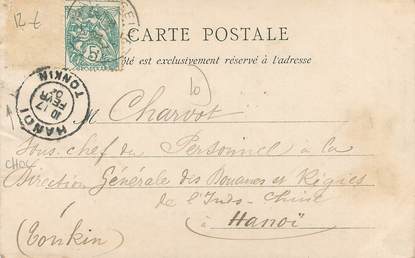 12 €
5
CARTE POSTALE
té est exclusivement réservé à l'adresse
HANOI
10
17
FEVR
02
TONKIN
10
M Charvot
CHOC
Sous chef du Personnel à la
Direction Générale des Douanes et Régies
de l'Indo-Chine
à Hanoï
(Tonkin)